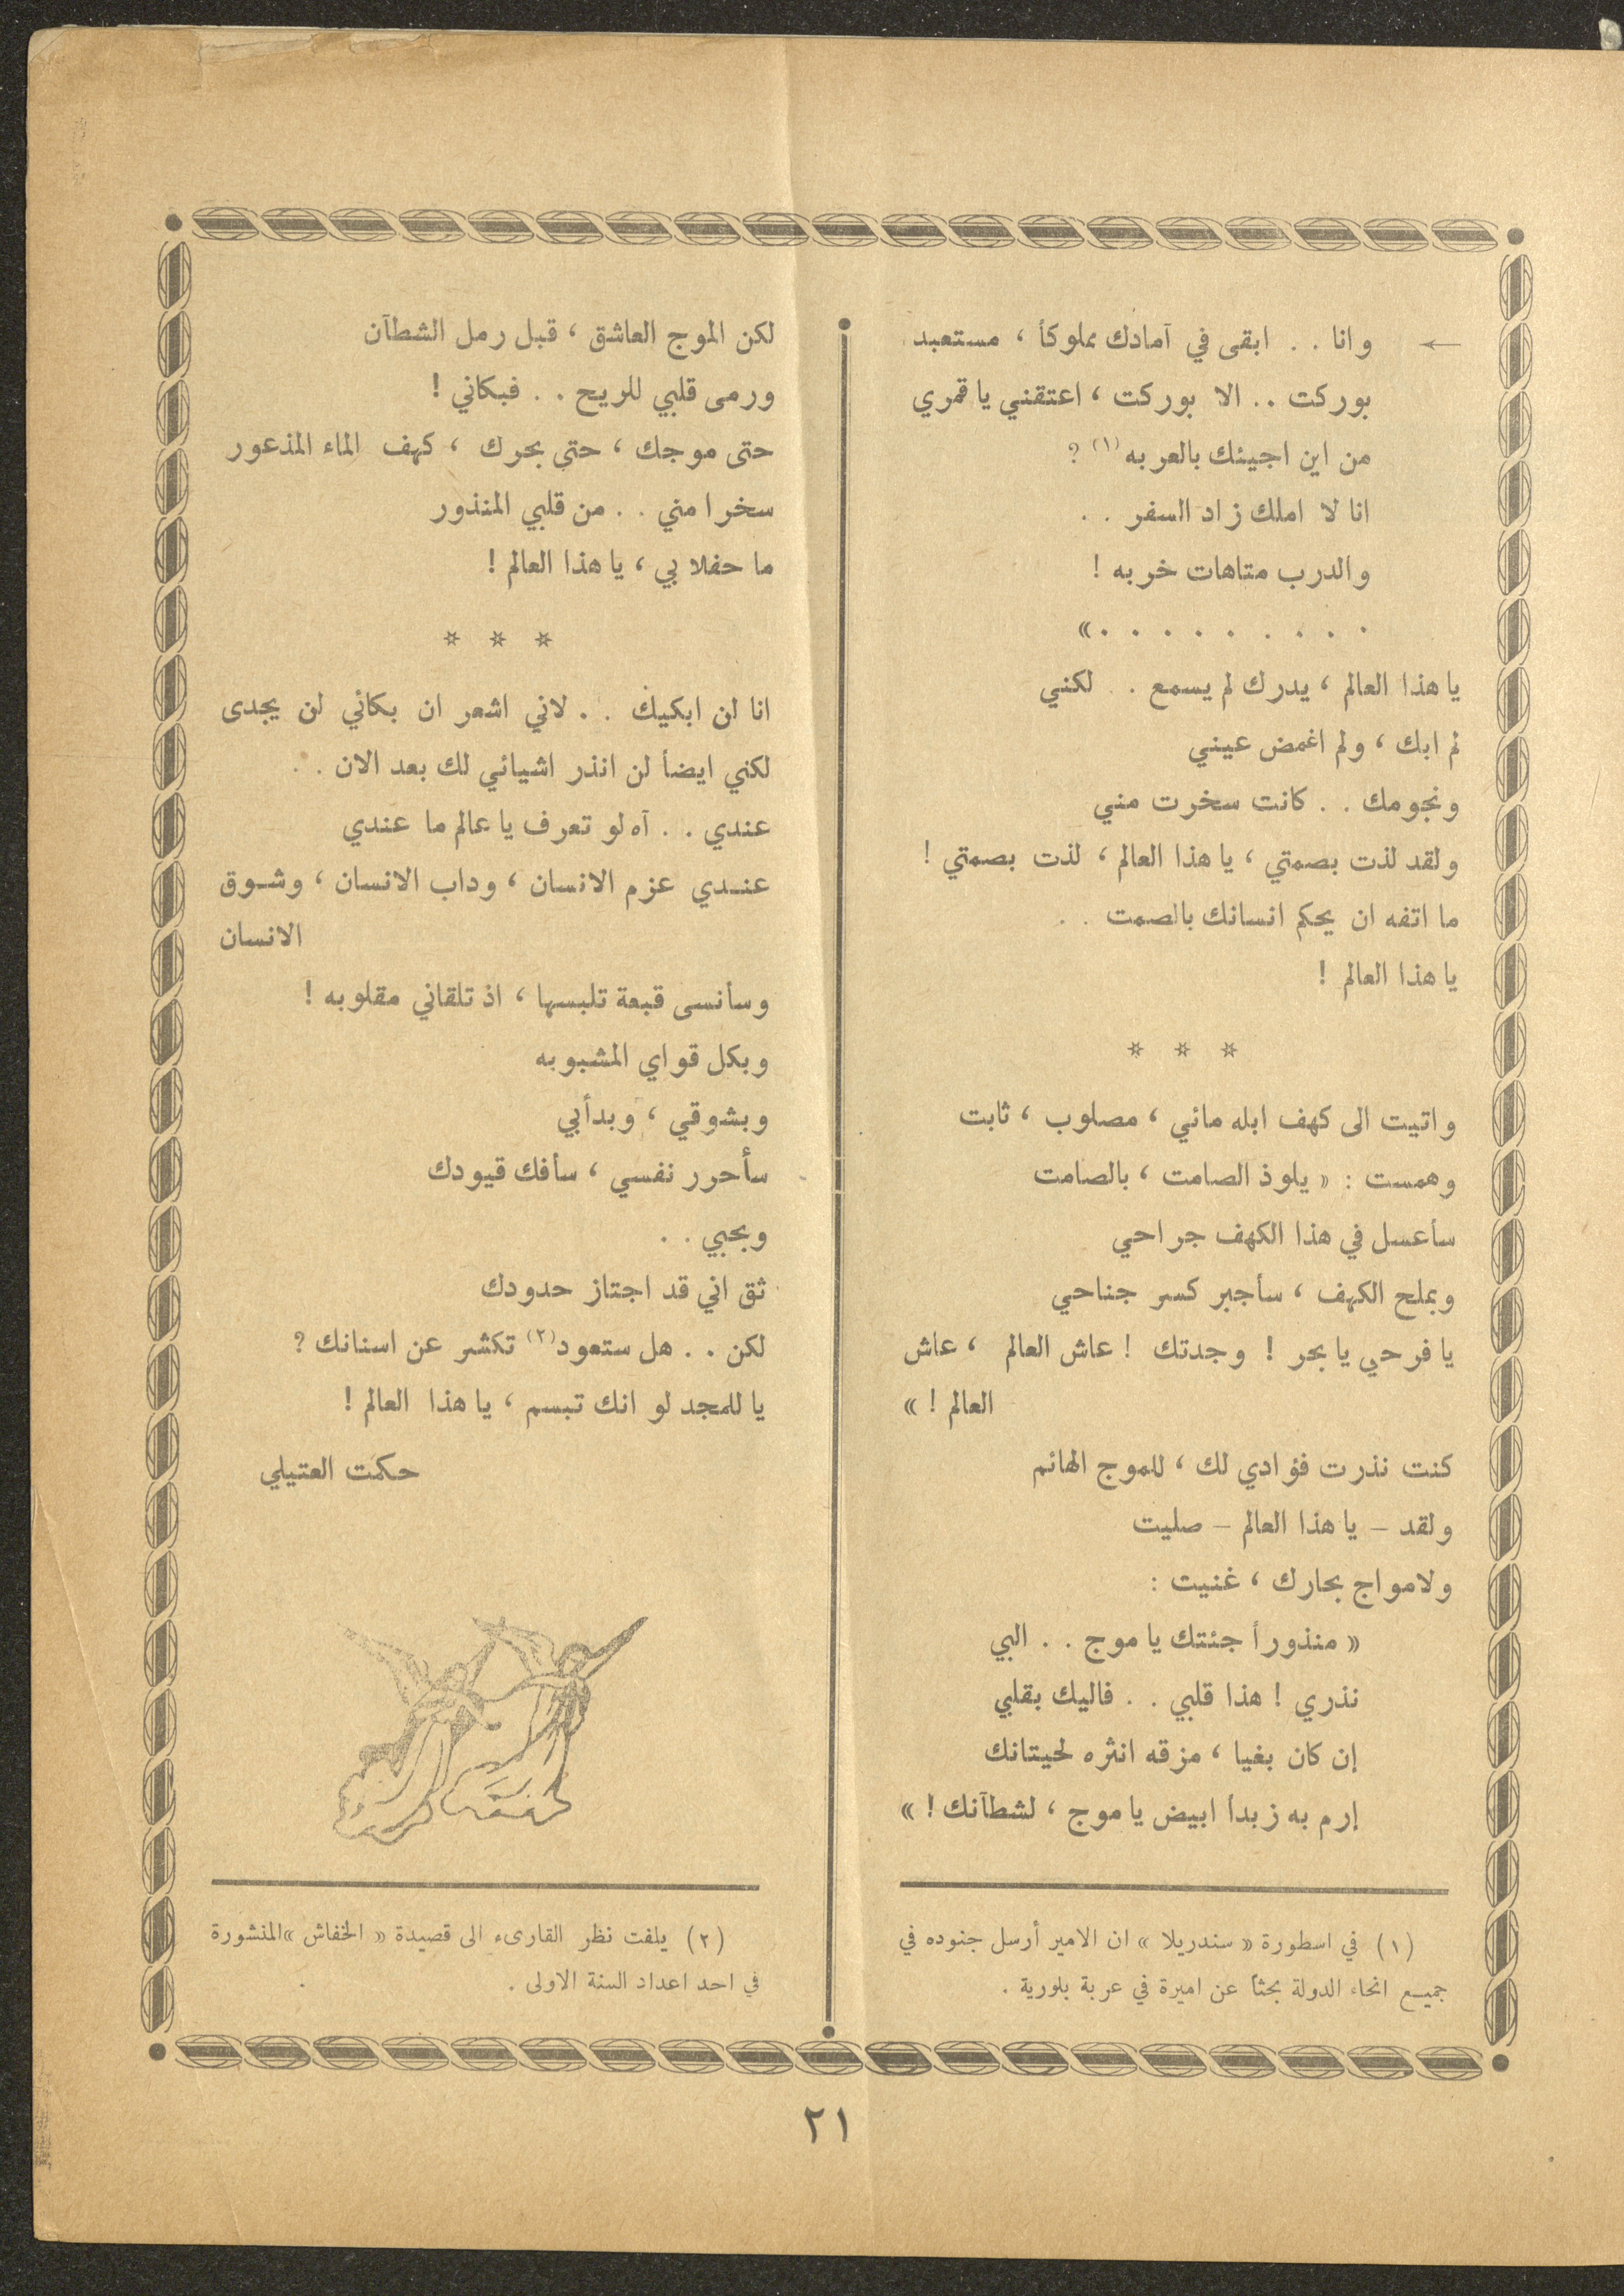 ← وانا . . ابقى في آمادك مملوكاً ، مستعبد
بوركت . . الا بوركت ، اعتقني يا قمري
من اين اجيئك بالعربه (١) ?
انا لا املك زاد السفر . .
والدرب متاهات خربه !
. . . . . . . . . »
يا هذا العالم ، يدرك لم يسمع . . لكني
لم ابك ، ولم اغمض عيني
ونجومك . . كانت سخرت مني
ولقد لذت بصمتي ، يا هذا العالم ، لذت بصمتي !
ما اتفه ان يحكم انسانك بالصمت . .
يا هذا العالم !
* * *
واتيت الى كهف ابله مائي ، مصلوب ، ثابت
وهمست : « يلوذ الصامت ، بالصامت
سأعسل في هذا الكهف جراحي
وبملح الكهف ، سأجبر كسر جناحي
يا فرحي يا بحر ! وجدتك ! عاش العالم ، عاش
العالم ! »
كنت نذرت فؤادي لك ، للموج الهائم
ولقد – يا هذا العالم – صليت
ولامواج بحارك ، غنيت :
« منذوراً جئتك يا موج . . البي
نذري ! هذا قلبي . . فاليك بقلبي
إن كان بغيا ، مزقه انثره لحيتانك
إرم به زبداً ابيض يا موج ، لشطآنك ! »
(١) في اسطورة « سندريلا » ان الامير أرسل جنوده في
جميع انحاء الدولة بحثاً عن اميرة في عربة بلورية .
لكن الموج العاشق ، قبل رمل الشطآن
ورمى قلبي للريح . . فبكاني !
حتى موجك ، حتى بحرك ، كهف الماء المذعور
سخرا مني . . من قلبي المنذور
ما حفلا بي ، يا هذا العالم !
* * *
انا لن ابكيك . . لاني اشعر ان بكائي لن يجدى
لكني ايضاً لن انذر اشيائي لك بعد الان . .
عندي . . آه لو تعرف يا عالم ما عندي
عنـدي عزم الانسان ، وداب الانسان ، وشـوق
الانسان
وسأنسى قبعة تلبسها ، اذ تلقاني مقلوبه !
وبكل قواي المشبوبه
وبشوقي ، وبدأبي
سأحرر نفسي ، سأفك قيودك
وبحبي . .
ثق اني قد اجتاز حدودك
لكن . . هل ستعود (٢) تكشر عن اسنانك ?
يا للمجد لو انك تبسم ، يا هذا العالم !
حكمت العتيلي
(٢) يلفت نظر القارىء الى قصيدة « الخفاش »المنشورة
في احد اعداد السنة الاولى .
٢١